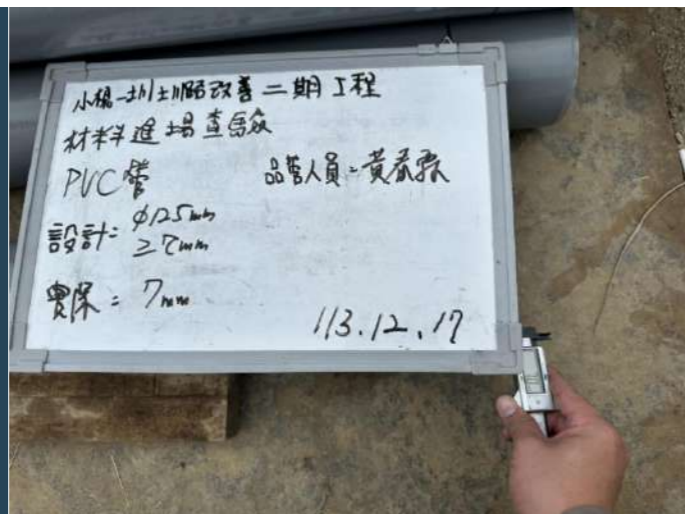 改善二期工程
材料進場查驗
PVC管 品管人員=黃
設計= φ125mm
≥7mm
實際 = 7mm
113.12.17